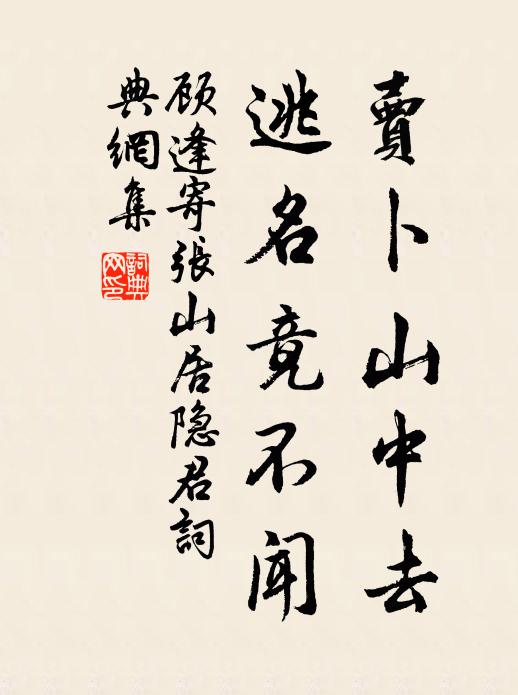 賣卜山中去
逃名竟不聞
顾逢寄張山居隐君詞
典網集
詞典網印